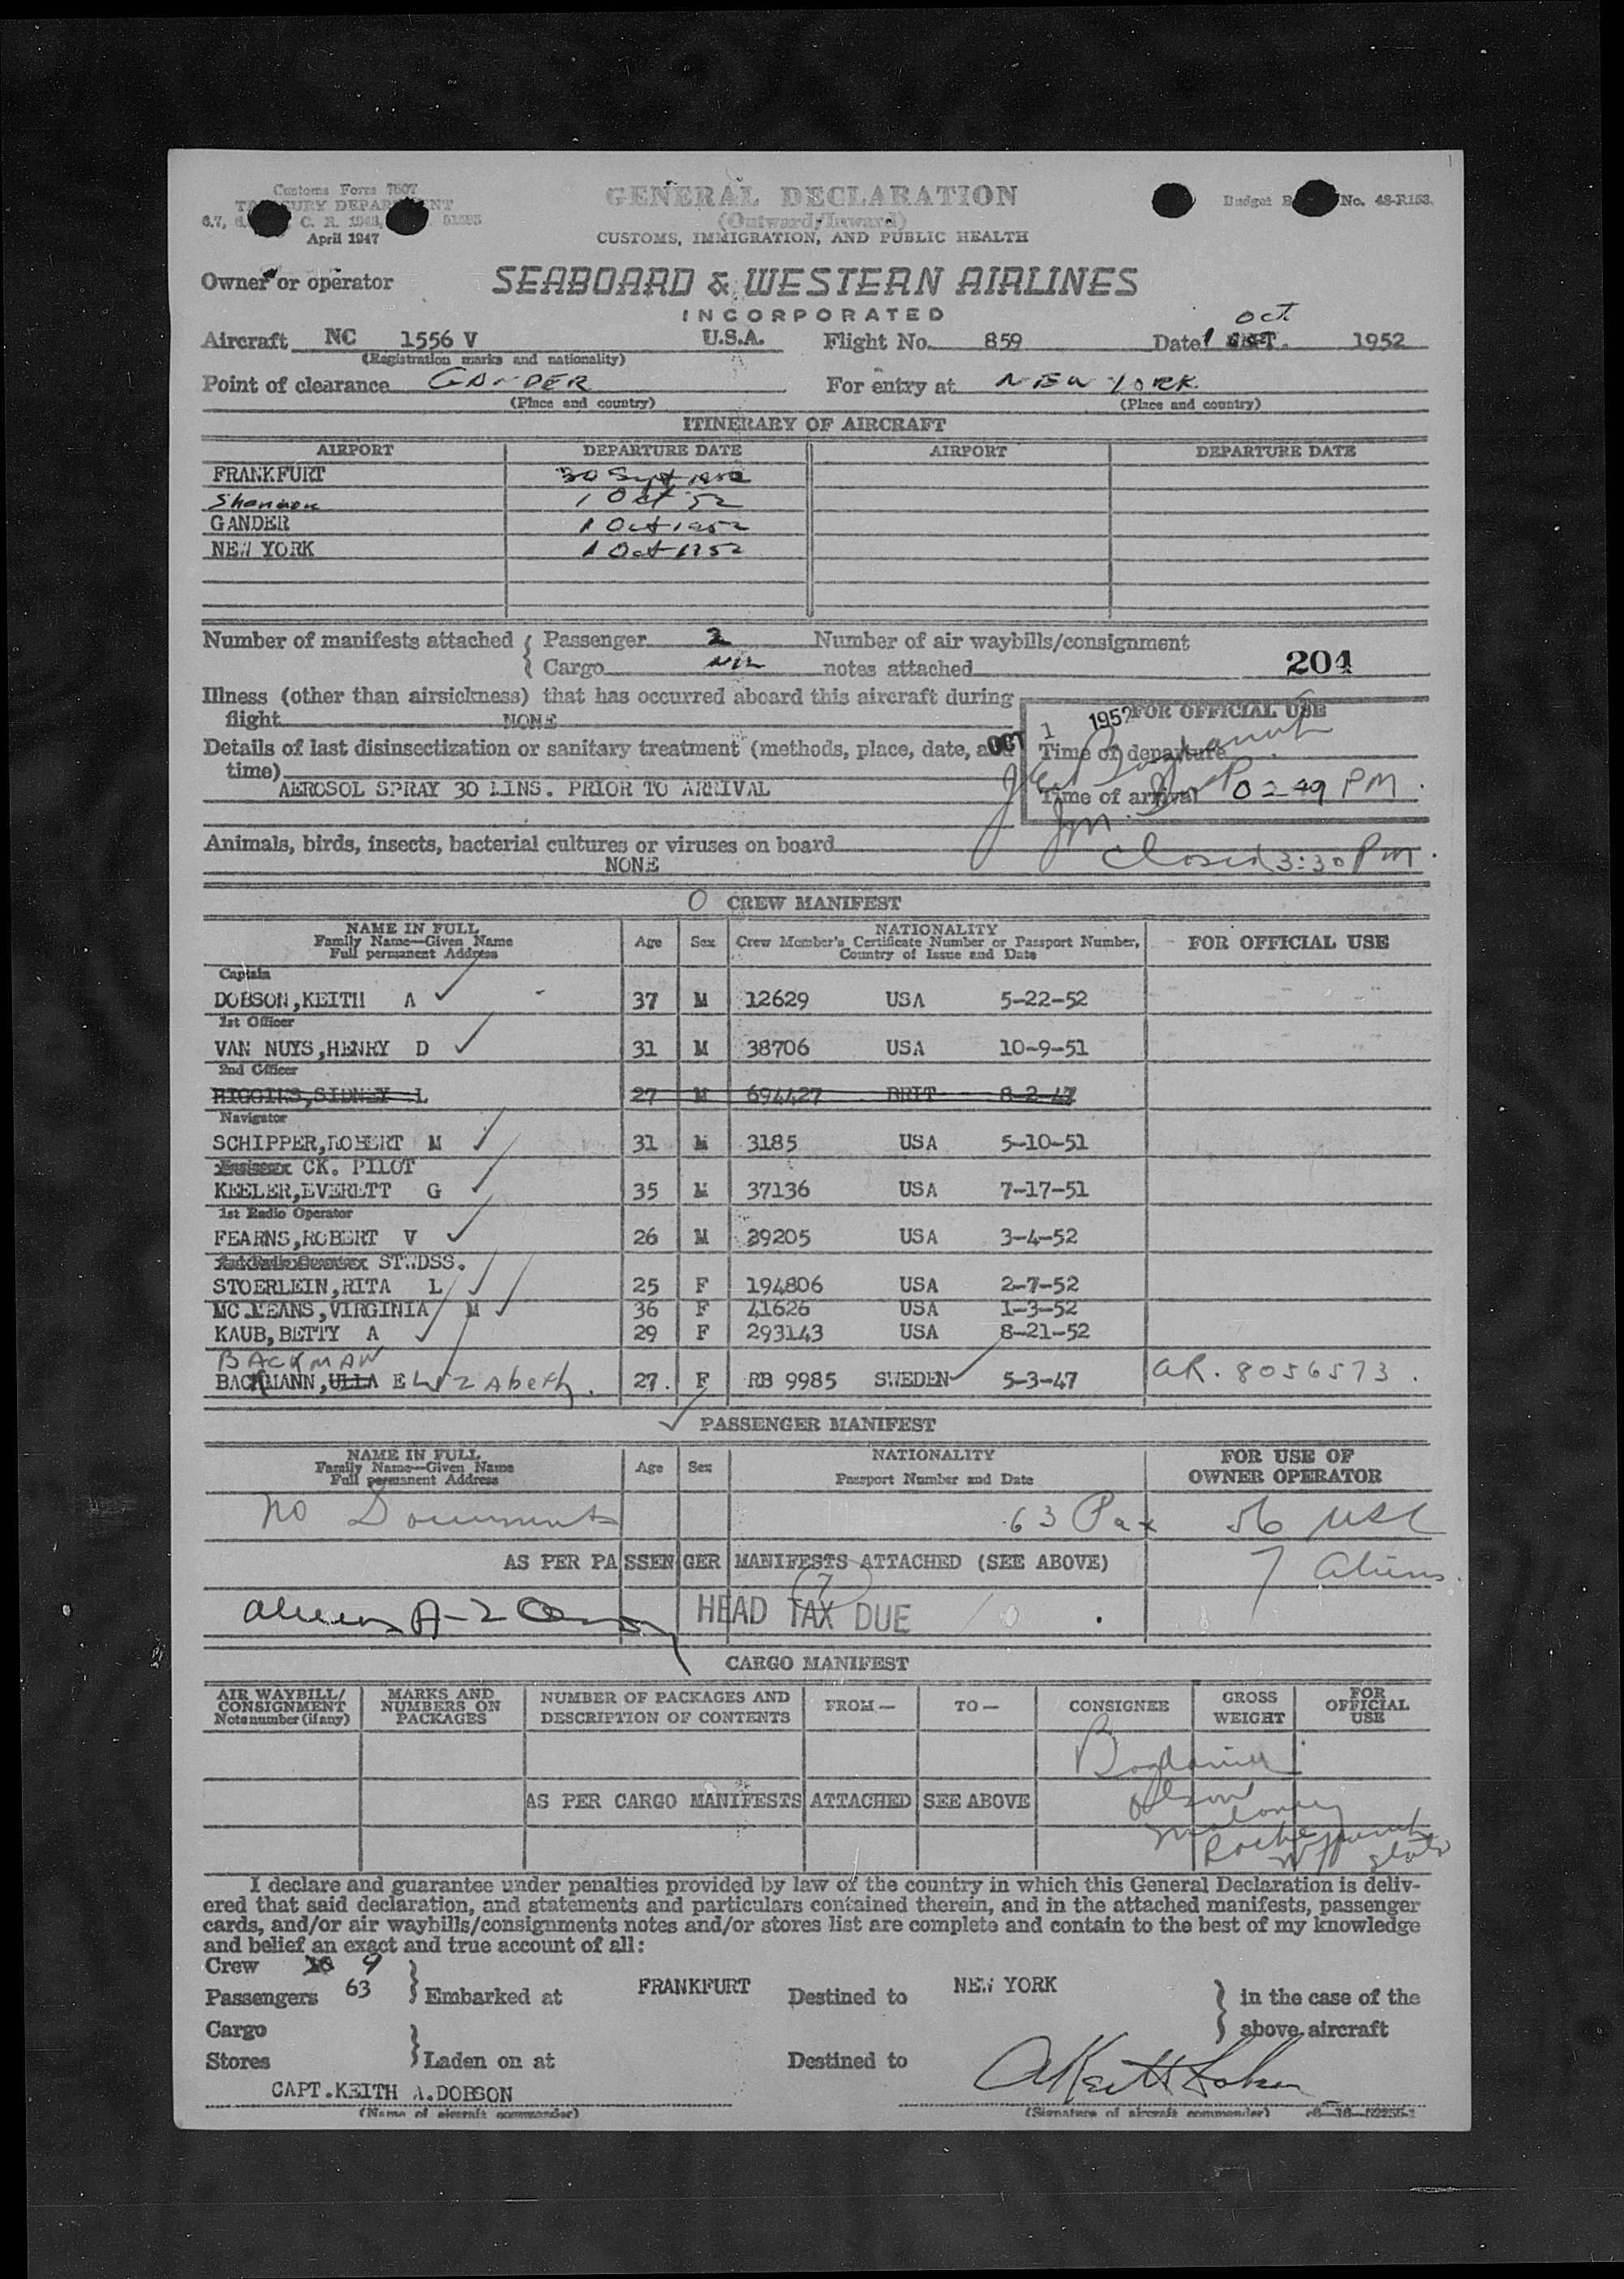 Customs Form 7507
TREASURY DEPARTMENT
April 1947
GENERAL DECLARATION
(Outward/Inward)
CUSTOMS, IMMIGRATION, AND PUBLIC HEALTH
No. 48-R153.
Owner or operator SEABOARD & WESTERN AIRLINES
INCORPORATED
Oct
Aircraft NC 1556 V U.S.A. Flight No. 859 Date 1 1952
(Registration marks and nationality)
Point of clearance GANDER For entry at NEW YORK
(Place and country) (Place and country)
ITINERARY OF AIRCRAFT
AIRPORT DEPARTURE DATE AIRPORT DEPARTURE DATE
FRANKFURT 30 Sept 1952
Shannon 1 Oct 52
GANDER 1 Oct 1952
NEW YORK 1 Oct 1952
Number of manifests attached { Passenger 2 Number of air waybills/consignment
Cargo NIL notes attached 204
Illness (other than airsickness) that has occurred aboard this aircraft during
flight NONE
OCT 1 1952 FOR OFFICIAL USE
Details of last disinsectization or sanitary treatment (methods, place, date, and
time)
Time of departure
AEROSOL SPRAY 30 MINS. PRIOR TO ARRIVAL
Time of arrival 02 49 PM.
Animals, birds, insects, bacterial cultures or viruses on board
Closed 3:30 PM.
NONE
0 CREW MANIFEST
NAME IN FULL Family Name—Given Name Full permanent Address Age Sex NATIONALITY Crew Member's Certificate Number or Passport Number, Country of Issue and Date FOR OFFICIAL USE
Captain
DOBSON,KEITH A 37 M 12629 USA 5-22-52
1st Officer
VAN NUYS,HENRY D 31 M 38706 USA 10-9-51
2nd Officer
HIGGINS,SIDNEY L 27 M 694427 BRIT 8-2-47
Navigator
SCHIPPER,ROBERT M 31 M 3185 USA 5-10-51
CK. PILOT
KEELER,EVERETT G 35 M 37136 USA 7-17-51
1st Radio Operator
FEARNS,ROBERT V 26 M 39205 USA 3-4-52
STWDSS.
STOERLEIN,RITA L 25 F 194806 USA 2-7-52
MC MEANS,VIRGINIA M 36 F 41626 USA 1-3-52
KAUB,BETTY A 29 F 293143 USA 8-21-52
BACKMAN
BACKMANN,ULLA ELIZAbeth. 27. F RB 9985 SWEDEN 5-3-47 AR. 8056573.
PASSENGER MANIFEST
NAME IN FULL Family Name—Given Name Full permanent Address Age Sex NATIONALITY Passport Number and Date FOR USE OF OWNER OPERATOR
No Documents 63 Pax 56 USC
AS PER PASSENGER MANIFESTS ATTACHED (SEE ABOVE) 7 Aliens.
7
Aliens A-2 Only HEAD TAX DUE
CARGO MANIFEST
AIR WAYBILL/CONSIGNMENT Note number (if any) MARKS AND NUMBERS ON PACKAGES NUMBER OF PACKAGES AND DESCRIPTION OF CONTENTS FROM— TO— CONSIGNEE GROSS WEIGHT FOR OFFICIAL USE
AS PER CARGO MANIFESTS ATTACHED SEE ABOVE
Olson
Maloney
I declare and guarantee under penalties provided by law of the country in which this General Declaration is deliv-
ered that said declaration, and statements and particulars contained therein, and in the attached manifests, passenger
cards, and/or air waybills/consignments notes and/or stores list are complete and contain to the best of my knowledge
and belief an exact and true account of all:
Crew 10 9
Passengers 63 } Embarked at FRANKFURT Destined to NEW YORK } in the case of the
Cargo above aircraft
Stores } Laden on at Destined to
CAPT.KEITH A.DOBSON
(Name of aircraft commander) (Signature of aircraft commander)